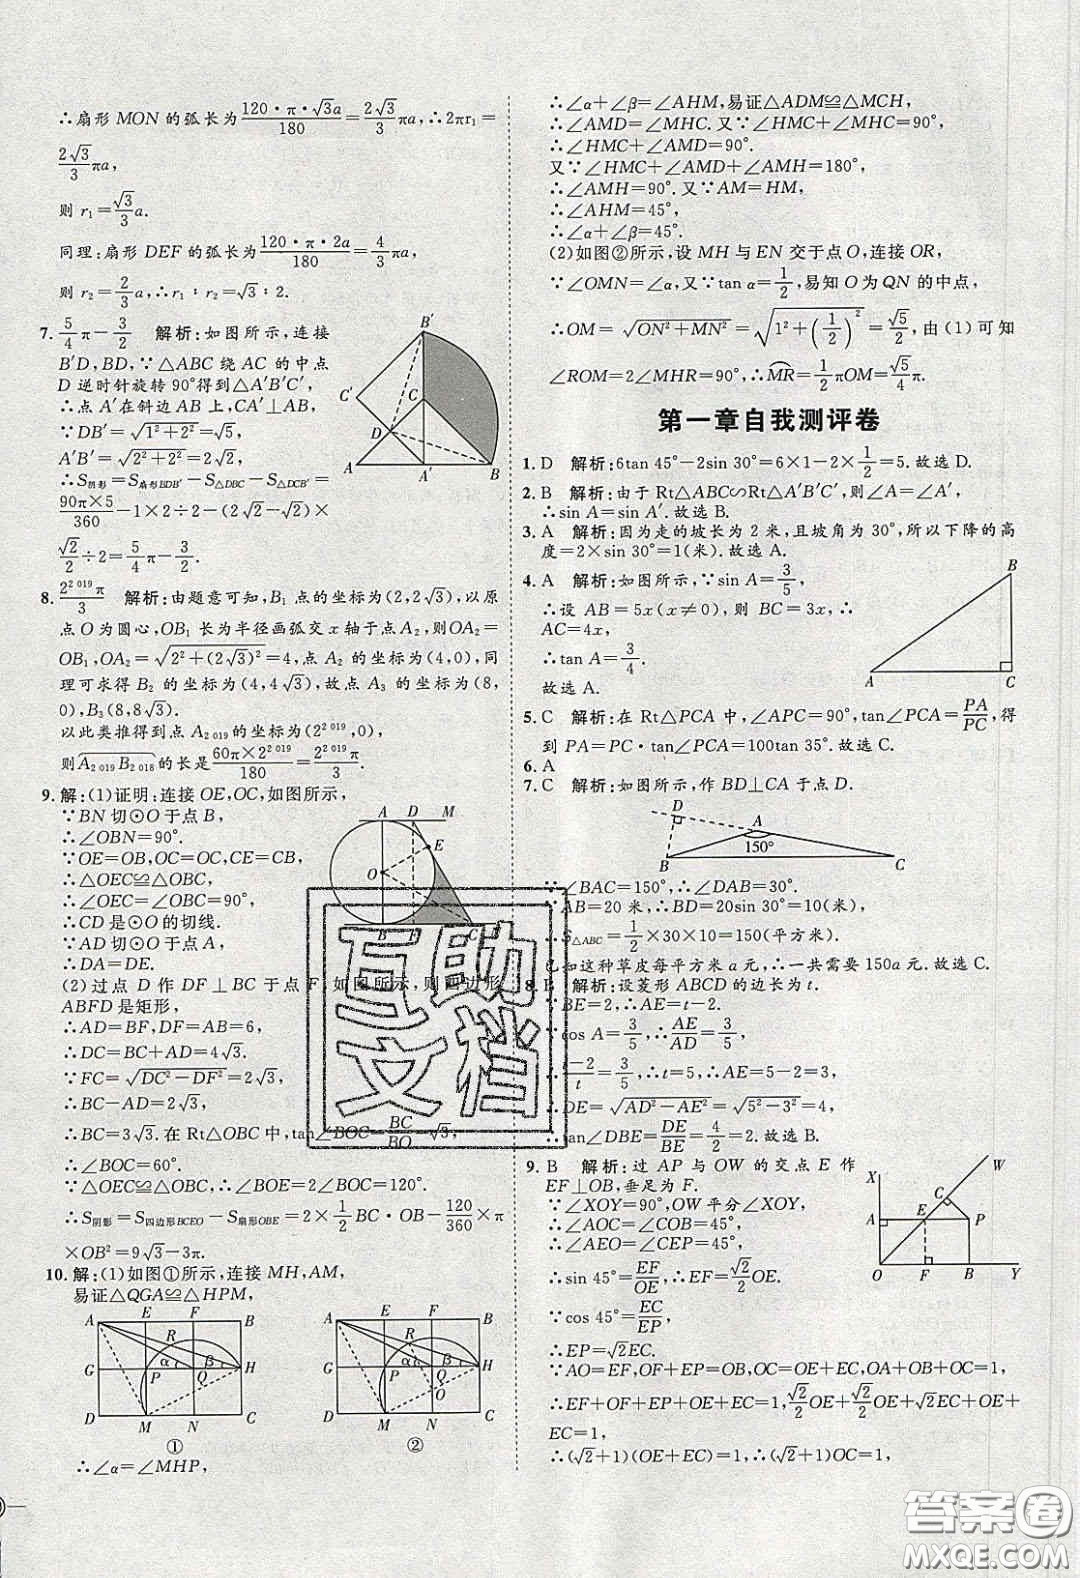 ∴扇形 MON 的弧长为120·π·√3a/180=2√3/3πa,∴2πr₁=
2√3/3πa,
则 r₁=√3/3a.
同理:扇形 DEF 的弧长为120·π·2a/180=4/3πa,
则 r₂=2/3a,∴r₁∶r₂=√3∶2.
7. 5/4π−3/2 解析:如图所示,连接
B′D,BD,∵△ABC 绕 AC 的中点
D 逆时针旋转 90°得到△A′B′C′,
∴点 A′在斜边 AB 上,CA′⊥AB,
∵DB′=√(1²+2²)=√5,
A′B′=√(2²+2²)=2√2,
∴S阴影=S扇形BDB′−S△DBC−S△DCB′=
90π×5/360−1×2÷2−(2√2−√2)×
√2÷2=5/4π−3/2.
B′
C′
C
D
A
A′
B
8. 2^2 019π/3 解析:由题意可知,B₁ 点的坐标为(2,2√3),以原
点 O 为圆心,OB₁ 长为半径画弧交 x 轴于点 A₂,则OA₂=
OB₁,OA₂=√(2²+(2√3)²)=4,点 A₂ 的坐标为(4,0),同
理可求得 B₂ 的坐标为(4,4√3),故点 A₃ 的坐标为(8,
0),B₃(8,8√3).
以此类推得到点 A₂ ₀₁₉的坐标为(2^2 019,0),
则A₂ ₀₁₉B₂ ₀₁₈的长是60π×2^2 019/180=2^2 019π/3.
9. 解:(1)证明:连接 OE,OC,如图所示,
∵BN 切⊙O 于点 B,
∴∠OBN=90°.
∵OE=OB,OC=OC,CE=CB,
∴△OEC≌△OBC,
∴∠OEC=∠OBC=90°,
∴CD 是⊙O 的切线.
∵AD 切⊙O 于点 A,
∴DA=DE.
A D M
E
O
B F C
(2)过点 D 作 DF⊥BC 于点 F,如图所示,则四边形
ABFD 是矩形,
∴AD=BF,DF=AB=6,
∴DC=BC+AD=4√3.
∵FC=√(DC²−DF²)=2√3,
∴BC−AD=2√3,
∴BC=3√3.在 Rt△OBC 中,tan∠BOC=BC/BO=√3,
∴∠BOC=60°.
∵△OEC≌△OBC,∴∠BOE=2∠BOC=120°.
∴S阴影=S四边形BCEO−S扇形OBE=2×1/2BC·OB−120/360×π
×OB²=9√3−3π.
10. 解:(1)如图①所示,连接 MH,AM,
易证△QGA≌△HPM,
A E F B
R
G P α Q β H
D M N C
①
A E F B
R
G P α Q β H
O
D M N C
②
∴∠α=∠MHP,
∴∠α+∠β=∠AHM,易证△ADM≌△MCH,
∴∠AMD=∠MHC.又∵∠HMC+∠MHC=90°,
∴∠HMC+∠AMD=90°.
又∵∠HMC+∠AMD+∠AMH=180°,
∴∠AMH=90°.又∵AM=HM,
∴∠AHM=45°,
∴∠α+∠β=45°.
(2)如图②所示,设 MH 与 EN 交于点 O,连接 OR,
∵∠OMN=∠α,又∵tan α=1/2,易知 O 为 QN 的中点,
∴OM=√(ON²+MN²)=√(1²+(1/2)²)=√5/2,由(1)可知
∠ROM=2∠MHR=90°,∴MR=1/2πOM=√5/4π.
第一章自我测评卷
1. D 解析:6tan 45°−2sin 30°=6×1−2×1/2=5.故选 D.
2. B 解析:由于 Rt△ABC∽Rt△A′B′C′,则∠A=∠A′,
∴sin A=sin A′.故选 B.
3. A 解析:因为走的坡长为 2 米,且坡角为 30°,所以下降的高
度=2×sin 30°=1(米).故选 A.
4. A 解析:如图所示,∵sin A=3/5,
∴设 AB=5x(x≠0),则 BC=3x,∴
AC=4x,
∴tan A=3/4.
故选 A.
B
A
C
5. C 解析:在 Rt△PCA 中,∠APC=90°,tan∠PCA=PA/PC,得
到 PA=PC·tan∠PCA=100tan 35°.故选 C.
6. A
7. C 解析:如图所示,作 BD⊥CA 于点 D.
D
A
150°
B
C
∵∠BAC=150°,∴∠DAB=30°.
∵AB=20 米,∴BD=20sin 30°=10(米),
∴S△ABC=1/2×30×10=150(平方米).
已知这种草皮每平方米 a 元,∴一共需要 150a 元.故选 C.
8. B 解析:设菱形 ABCD 的边长为 t.
∵BE=2,∴AE=t−2.
∵cos A=3/5,∴AE/AD=3/5,
∴t−2/t=3/5,∴t=5,∴AE=5−2=3,
∴DE=√(AD²−AE²)=√(5²−3²)=4,
∴tan∠DBE=DE/BE=4/2=2.故选 B.
9. B 解析:过 AP 与 OW 的交点 E 作
EF⊥OB,垂足为 F.
∵∠XOY=90°,OW 平分∠XOY,
∴∠AOC=∠COB=45°,
∴∠AEO=∠CEP=45°,
∴sin 45°=EF/OE,∴EF=√2/2OE.
∵cos 45°=EC/EP,
∴EP=√2EC.
X
W
C
A E P
O F B Y
∵AO=EF,OF+EP=OB,OC=OE+EC,OA+OB+OC=1,
∴EF+OF+EP+OE+EC=1,∴√2/2OE+√2/2OE+√2EC+OE+
EC=1,
∴(√2+1)(OE+EC)=1,∴(√2+1)OC=1,
互助
文档
答案圈
MXQE.COM